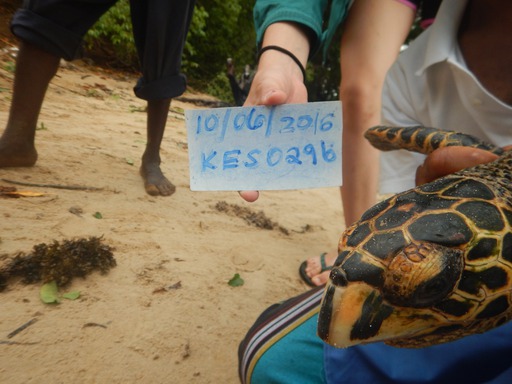 10/06/2016
KES0296